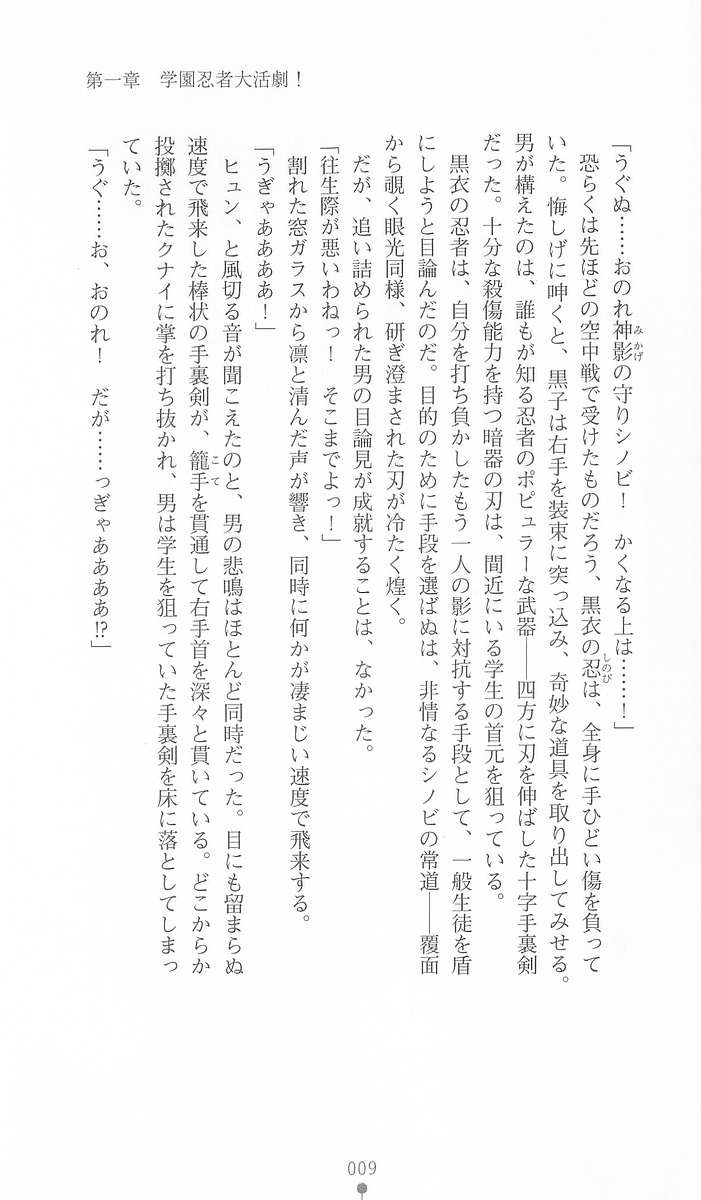 第一章　学園忍者大活劇！
「うぐぬ……おのれ神影の守りシノビ！　かくなる上は……！」
　恐らくは先ほどの空中戦で受けたものだろう、黒衣の忍は、全身に手ひどい傷を負って
いた。悔しげに呻くと、黒子は右手を装束に突っ込み、奇妙な道具を取り出してみせる。
男が構えたのは、誰もが知る忍者のポピュラーな武器――四方に刃を伸ばした十字手裏剣
だった。十分な殺傷能力を持つ暗器の刃は、間近にいる学生の首元を狙っている。
　黒衣の忍者は、自分を打ち負かしたもう一人の影に対抗する手段として、一般生徒を盾
にしようと目論んだのだ。目的のために手段を選ばぬは、非情なるシノビの常道――覆面
から覗く眼光同様、研ぎ澄まされた刃が冷たく煌く。
　だが、追い詰められた男の目論見が成就することは、なかった。
「往生際が悪いわねっ！　そこまでよっ！」
　割れた窓ガラスから凛と清んだ声が響き、同時に何かが凄まじい速度で飛来する。
「うぎゃああああ！」
　ヒュン、と風切る音が聞こえたのと、男の悲鳴はほとんど同時だった。目にも留まらぬ
速度で飛来した棒状の手裏剣が、籠手を貫通して右手首を深々と貫いている。どこからか
投擲されたクナイに掌を打ち抜かれ、男は学生を狙っていた手裏剣を床に落としてしまっ
ていた。
「うぐ……お、おのれ！　だが……っぎゃああああ!?」
009